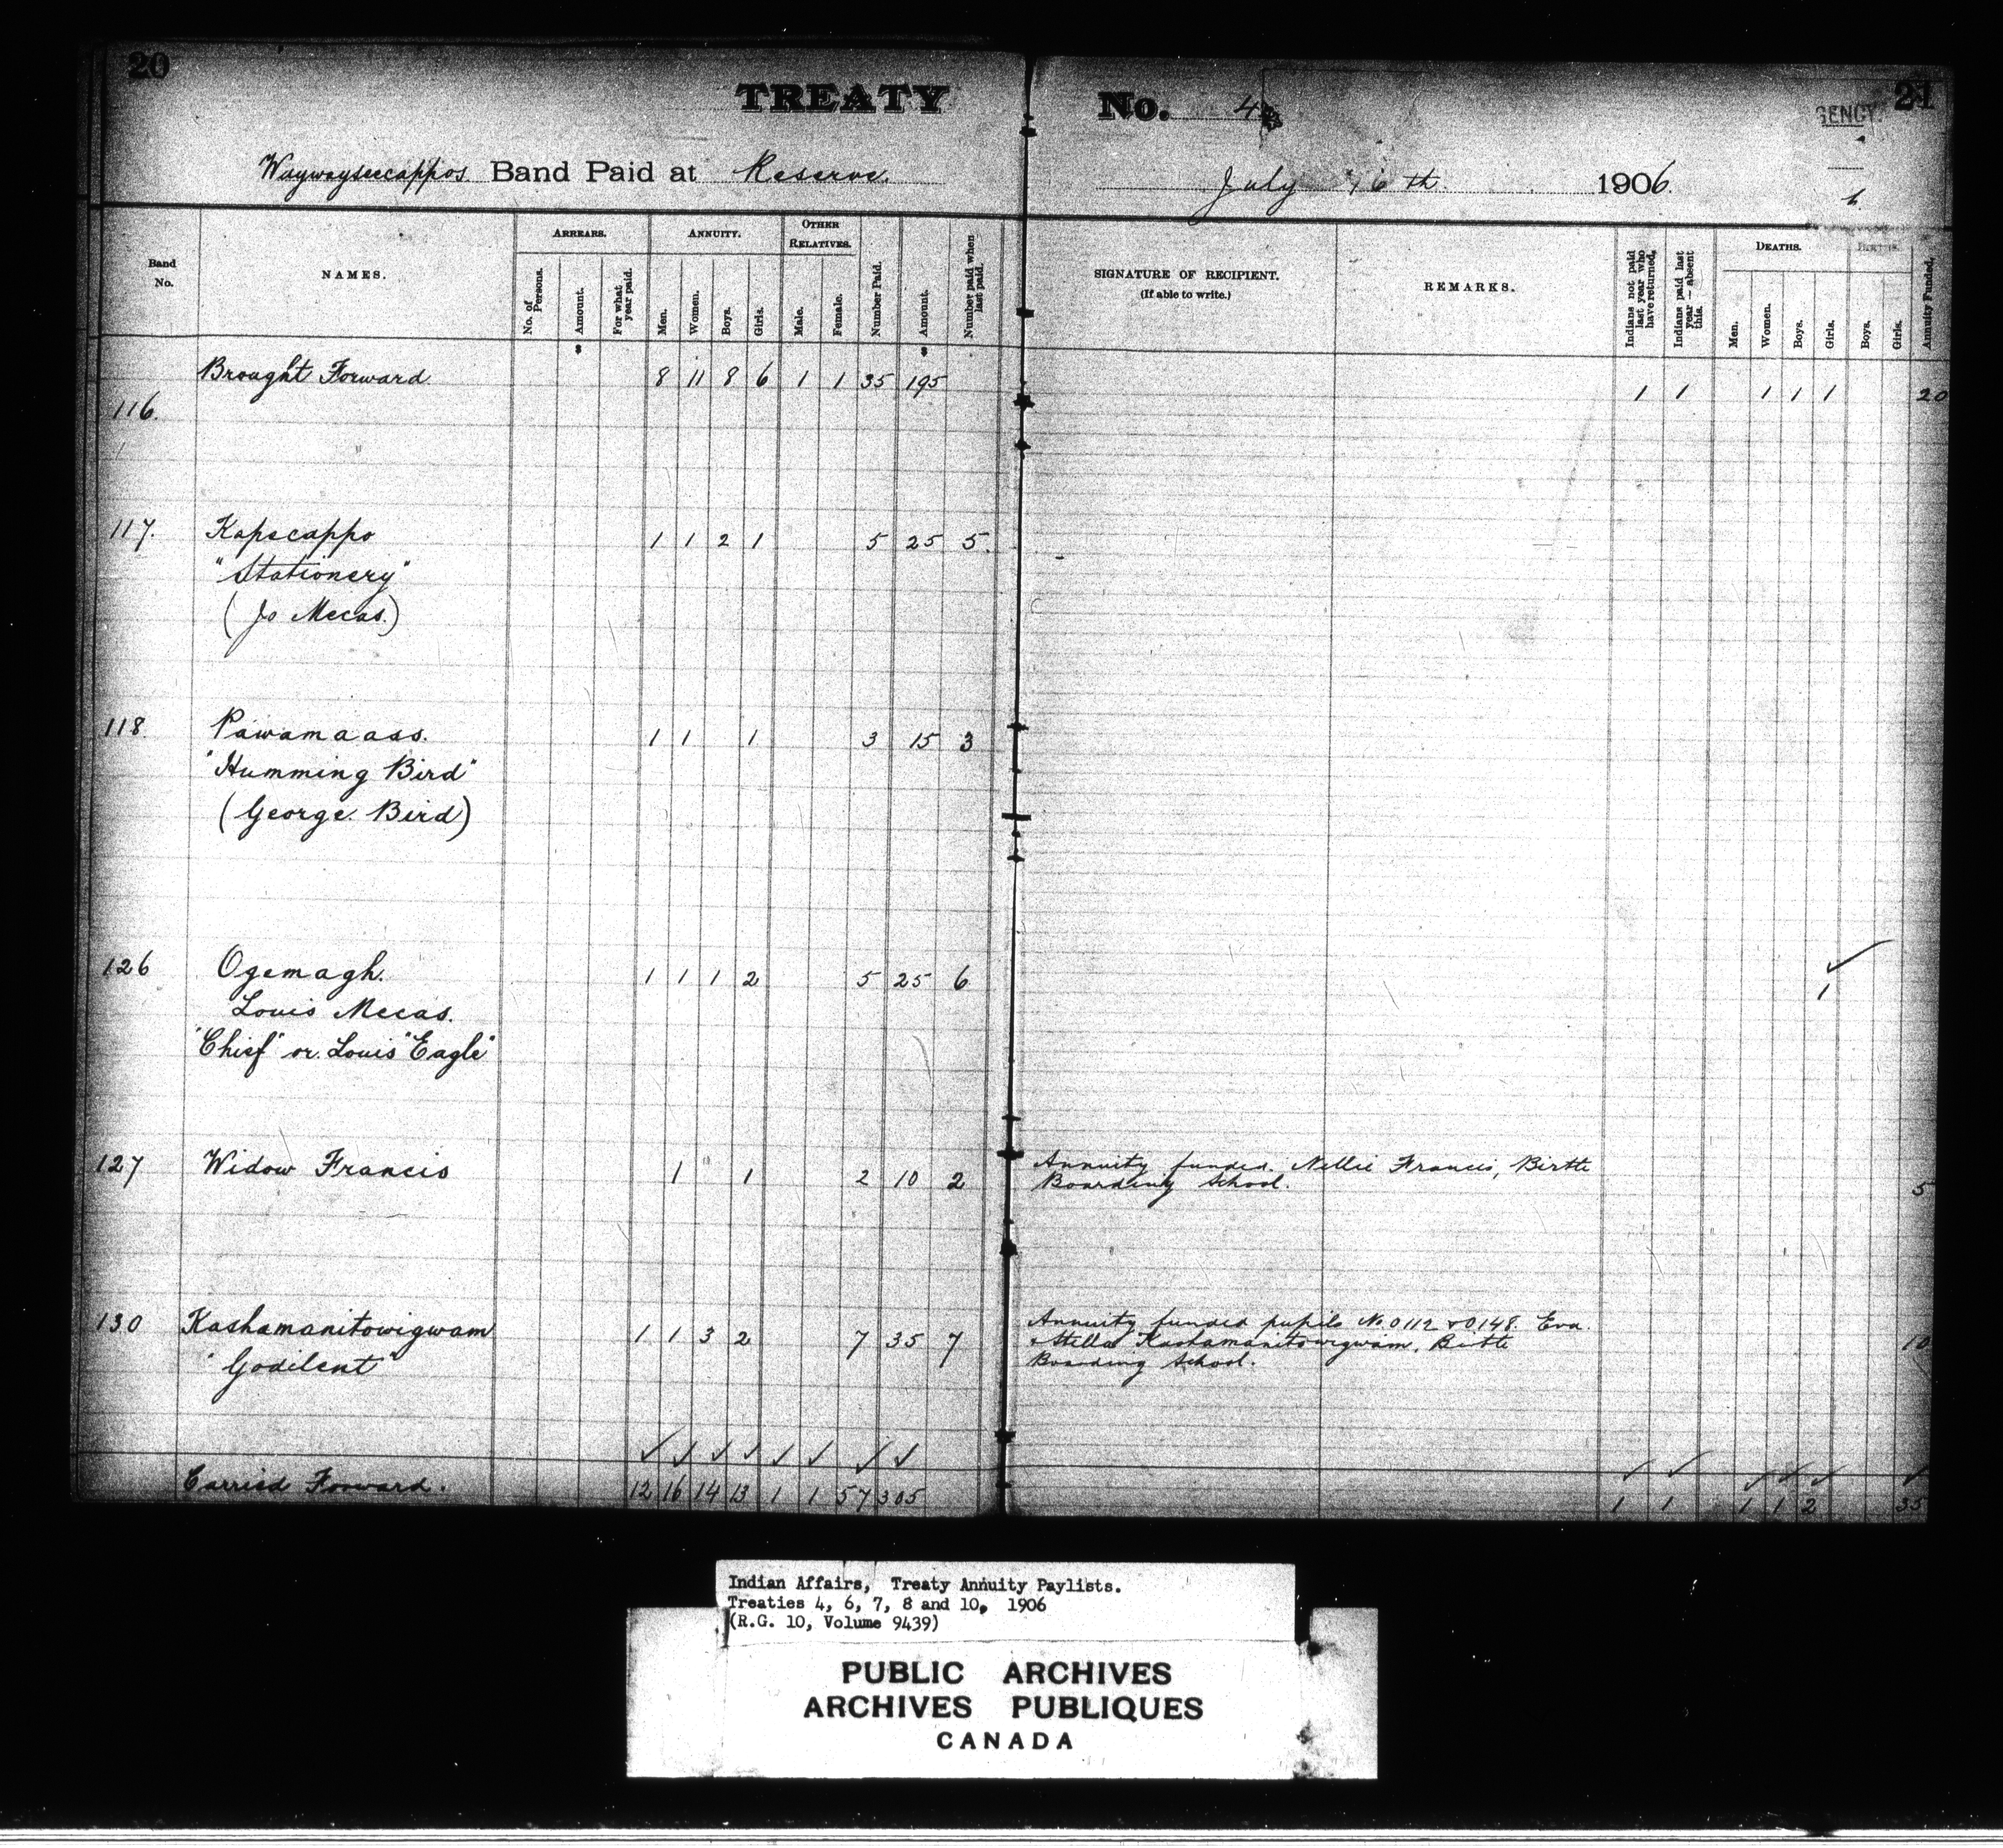 20
TREATY No. 4
21
GENCY.
Waywayseecappos Band Paid at Reserve. July 16th 1906.
Band No.
NAMES.
ARREARS.
No. of Persons.
Amount.
For what year paid.
ANNUITY.
Men.
Women.
Boys.
Girls.
OTHER RELATIVES.
Male.
Female.
Number Paid.
Amount.
Number paid when last paid.
SIGNATURE OF RECIPIENT.
(If able to write.)
REMARKS.
Indians not paid last year who have returned.
Indians paid last year — absent this.
DEATHS.
Men.
Women.
Boys.
Girls.
BIRTHS.
Boys.
Girls.
Annuity Funded.
$ $
Brought Forward. 8 11 8 6 1 1 35 195 1 1 1 1 1 20
116.
117. Kapecappo 1 1 2 1 5 25 5.
"Stationery"
(Jo Mecas.)
118. Pawamaass. 1 1 1 3 15 3
"Humming Bird"
(George Bird)
126 Ogemagh. 1 1 1 2 5 25 6 ✓ 1
Louis Mecas.
"Chief" or Louis "Eagle"
127 Widow Francis 1 1 2 10 2 Annuity funded. Nellie Francis, Birtle
Boarding School. 5
130 Kashamanitowigwam 1 1 3 2 7 35 7 Annuity funded pupils No. 0112 & 0148. Eva
"Godilent" & Stella Kashamanitowigwam, Birtle 10
Boarding School.
✓ ✓ ✓ ✓ ✓ ✓ ✓ ✓ ✓ ✓ ✓ ✓ ✓ ✓
Carried Forward. 12 16 14 13 1 1 57 305 1 1 1 1 2 35
Indian Affairs, Treaty Annuity Paylists.
Treaties 4, 6, 7, 8 and 10, 1906
(R.G. 10, Volume 9439)
PUBLIC ARCHIVES
ARCHIVES PUBLIQUES
CANADA